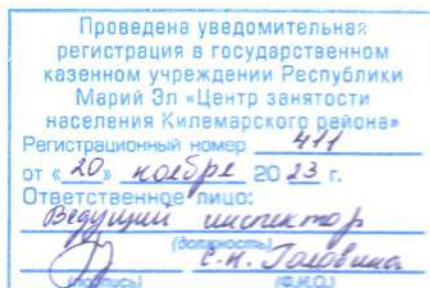 Проведена уведомительная
регистрация в государственном
казенном учреждении Республики
Марий Эл «Центр занятости
населения Килемарского района»
Регистрационный номер 411
от «20» ноября 2023 г.
Ответственное лицо:
Ведущий инспектор
(должность)
С.Н. Головина
(подпись) (Ф.И.О.)